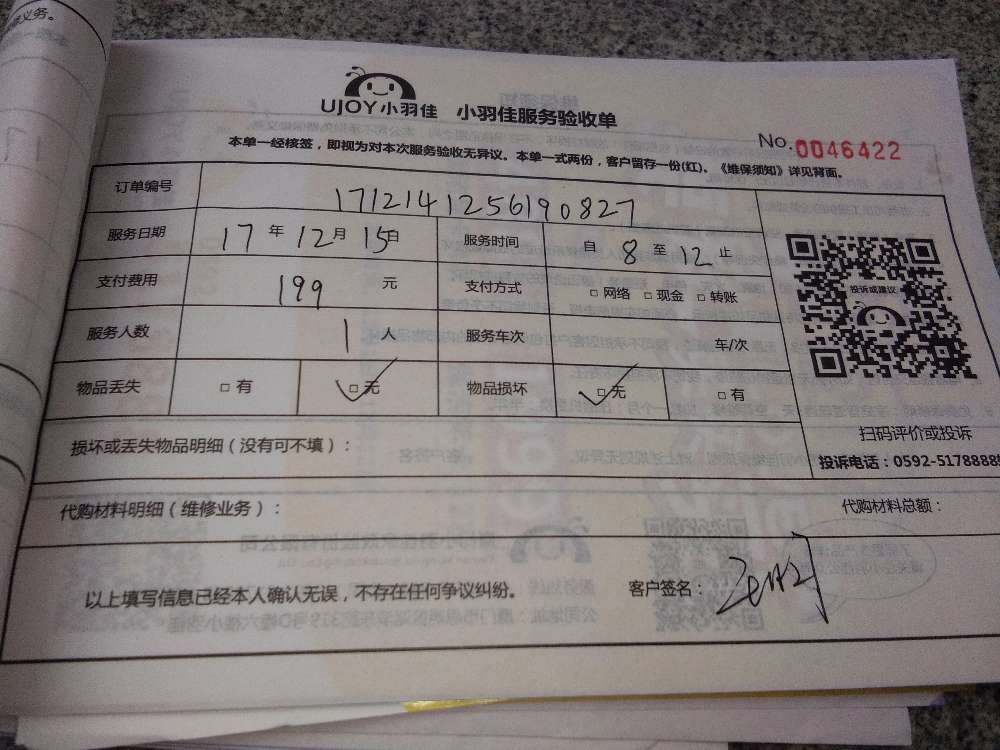 义务。
UJOY小羽佳 小羽佳服务验收单
No.0046422
本单一经核签，即视为对本次服务验收无异议。本单一式两份，客户留存一份(红)。《维保须知》详见背面。
订单编号 171214125619０827
服务日期 17 年 12 月 15 日 服务时间 自 8 至 12 止
支付费用 199 元 支付方式 □ 网络 □ 现金 □ 转账
服务人数 1 人 服务车次 车/次
物品丢失 □ 有 □ 无 物品损坏 □ 无 □ 有
投诉或建议
扫码评价或投诉
投诉电话：0592-5178888
损坏或丢失物品明细（没有可不填）：
代购材料明细（维修业务）： 代购材料总额：
以上填写信息已经本人确认无误，不存在任何争议纠纷。 客户签名：